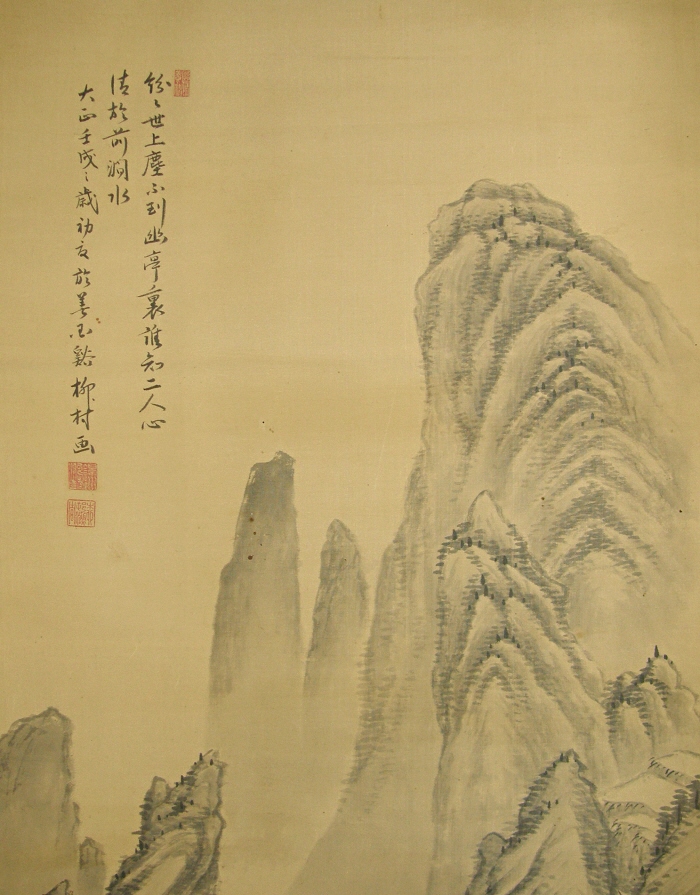 紛〻世上塵不到幽亭裏誰知二人心
清於前澗水
大正壬戌之歳初夏於墨谿柳村画